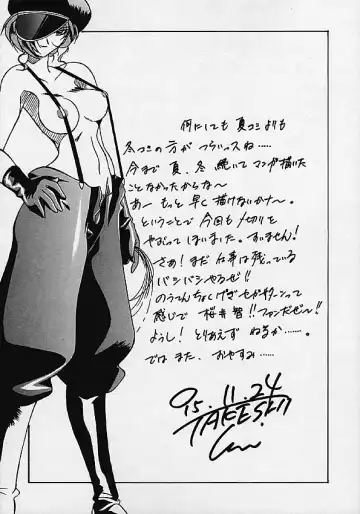 何にしても 夏コミよりも
冬コミの方が つらいっスね……
今まで 夏、冬 続いて マンガ描いた
ことなかったからな〜
あー もっと 早く 描けないかナ〜。
ということで 今回も 〆切りを
やぶって しまいました。すいません!
さぁ! まだ 仕事は 残っている
バシバシやるぜ!!
のうてんちょくげきセガサターンって
感じで 桜井智!! ファンだぜ〜!!
ようし! とりあえず ねるか……。
では また、おやすみ……
95.11.24
TAKESHI